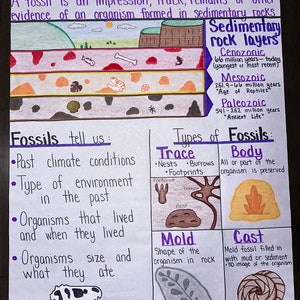 A fossil is an impression, track, remains or other
evidence of an organism formed in sedimentary rocks
Sedimentary
rock layers
Cenozoic
66 million years - today
(youngest or most recent)
Mesozoic
251.9-66 million years
"Age of Reptiles"
Paleozoic
541-252 million years
"Ancient Life"
Fossils tell us:
• Past climate conditions
• Type of environment
in the past
• Organisms that lived
and when they lived
• Organisms size and
what they ate
Types of Fossils:
Trace
• Nests • Burrows
• Footprints
Body
All or part of the
organism is preserved
Mold
Shape of the
organism in rock
Cast
Mold fossil filled in
with mud or sediment
• 3D image of the organism